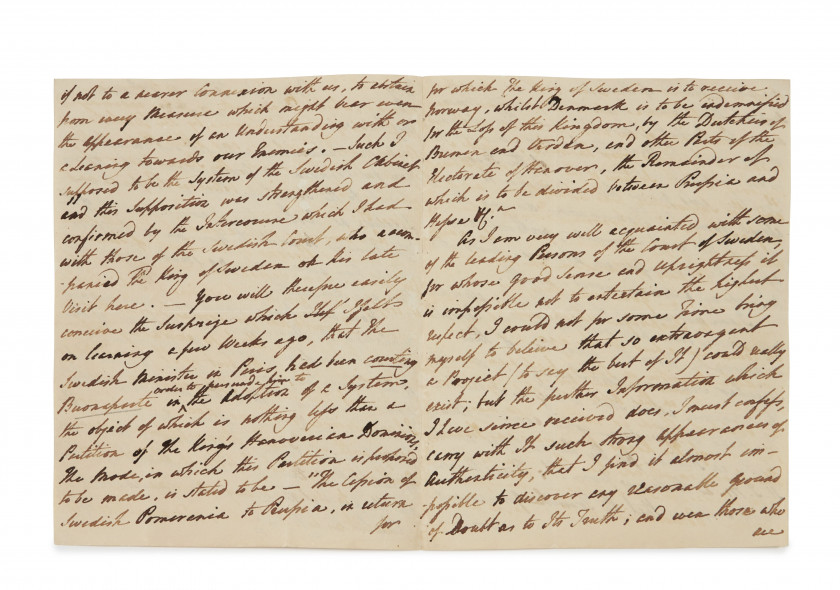 if not to a nearer Connexion with us, to abstain
from every Measure which might bear even
the appearance of an Understanding with or
a Leaning towards our Enemies. — Such I
supposed to be the System of the Swedish Cabinet
and this Supposition was strengthened and
confirmed by the Intercourse which I had
with those of the Swedish Court, who accom-
-panied the King of Sweden on his late
Visit here. — You will therefore easily
conceive the Surprize which I felt
on learning a few Weeks ago, that the
Swedish Minister in Paris, had been courting
Buonaparte in order to persuade him to the Adoption of a System,
the object of which is nothing less than a
Partition of the King's Hanoverian Dominions,
The Mode, in which this Partition is proposed
to be made, is stated to be — "The Cession of
Swedish Pomerania to Prussia, in return
for
for which the King of Sweden is to receive
Norway, whilst Denmark is to be indemnified
for the Loss of this Kingdom, by the Dutchies of
Bremen and Verden, and other Parts of the
Electorate of Hanover, the Remainder of
which is to be divided between Prussia and
Hesse
As I am very well acquainted with some
of the leading Persons of the Court of Sweden,
for whose good Sense and Uprightness it
is impossible not to entertain the highest
respect, I could not for some Time bring
myself to believe that so extravagant
a Project (to say the best of It) could really
exist; but the further Information which
I have since received does, I must confess,
carry with It such strong appearances of
Authenticity, that I find it almost im-
-possible to discover any reasonable ground
of Doubt as to Its Truth; and even those who
are